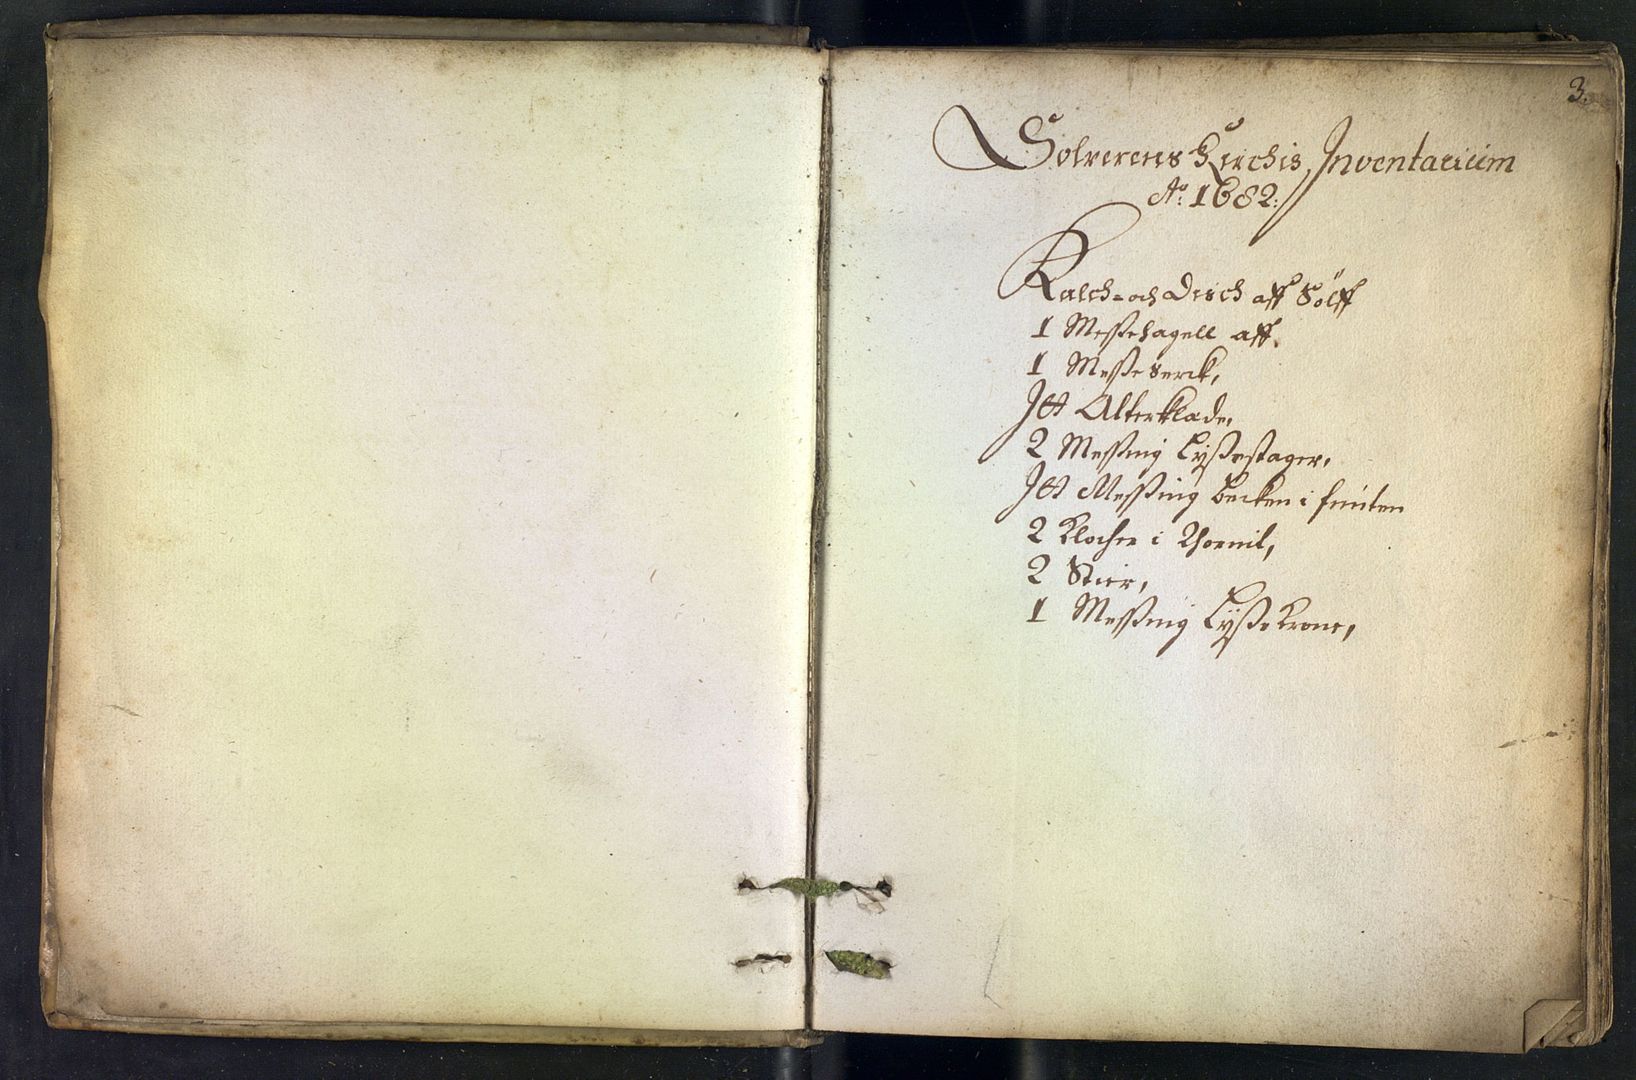 3.
Solverens Kirchis Inventarium
Ao: 1682:
Kalch= och Disch aff Sölff
1 Messehagell aff.
1 Messe serck,
Itt Alterklade,
2 Messing Lysestager,
Itt Messing becken i funten
2 Klocher i Thornit,
2 Stier,
1 Messing Lysekrone,